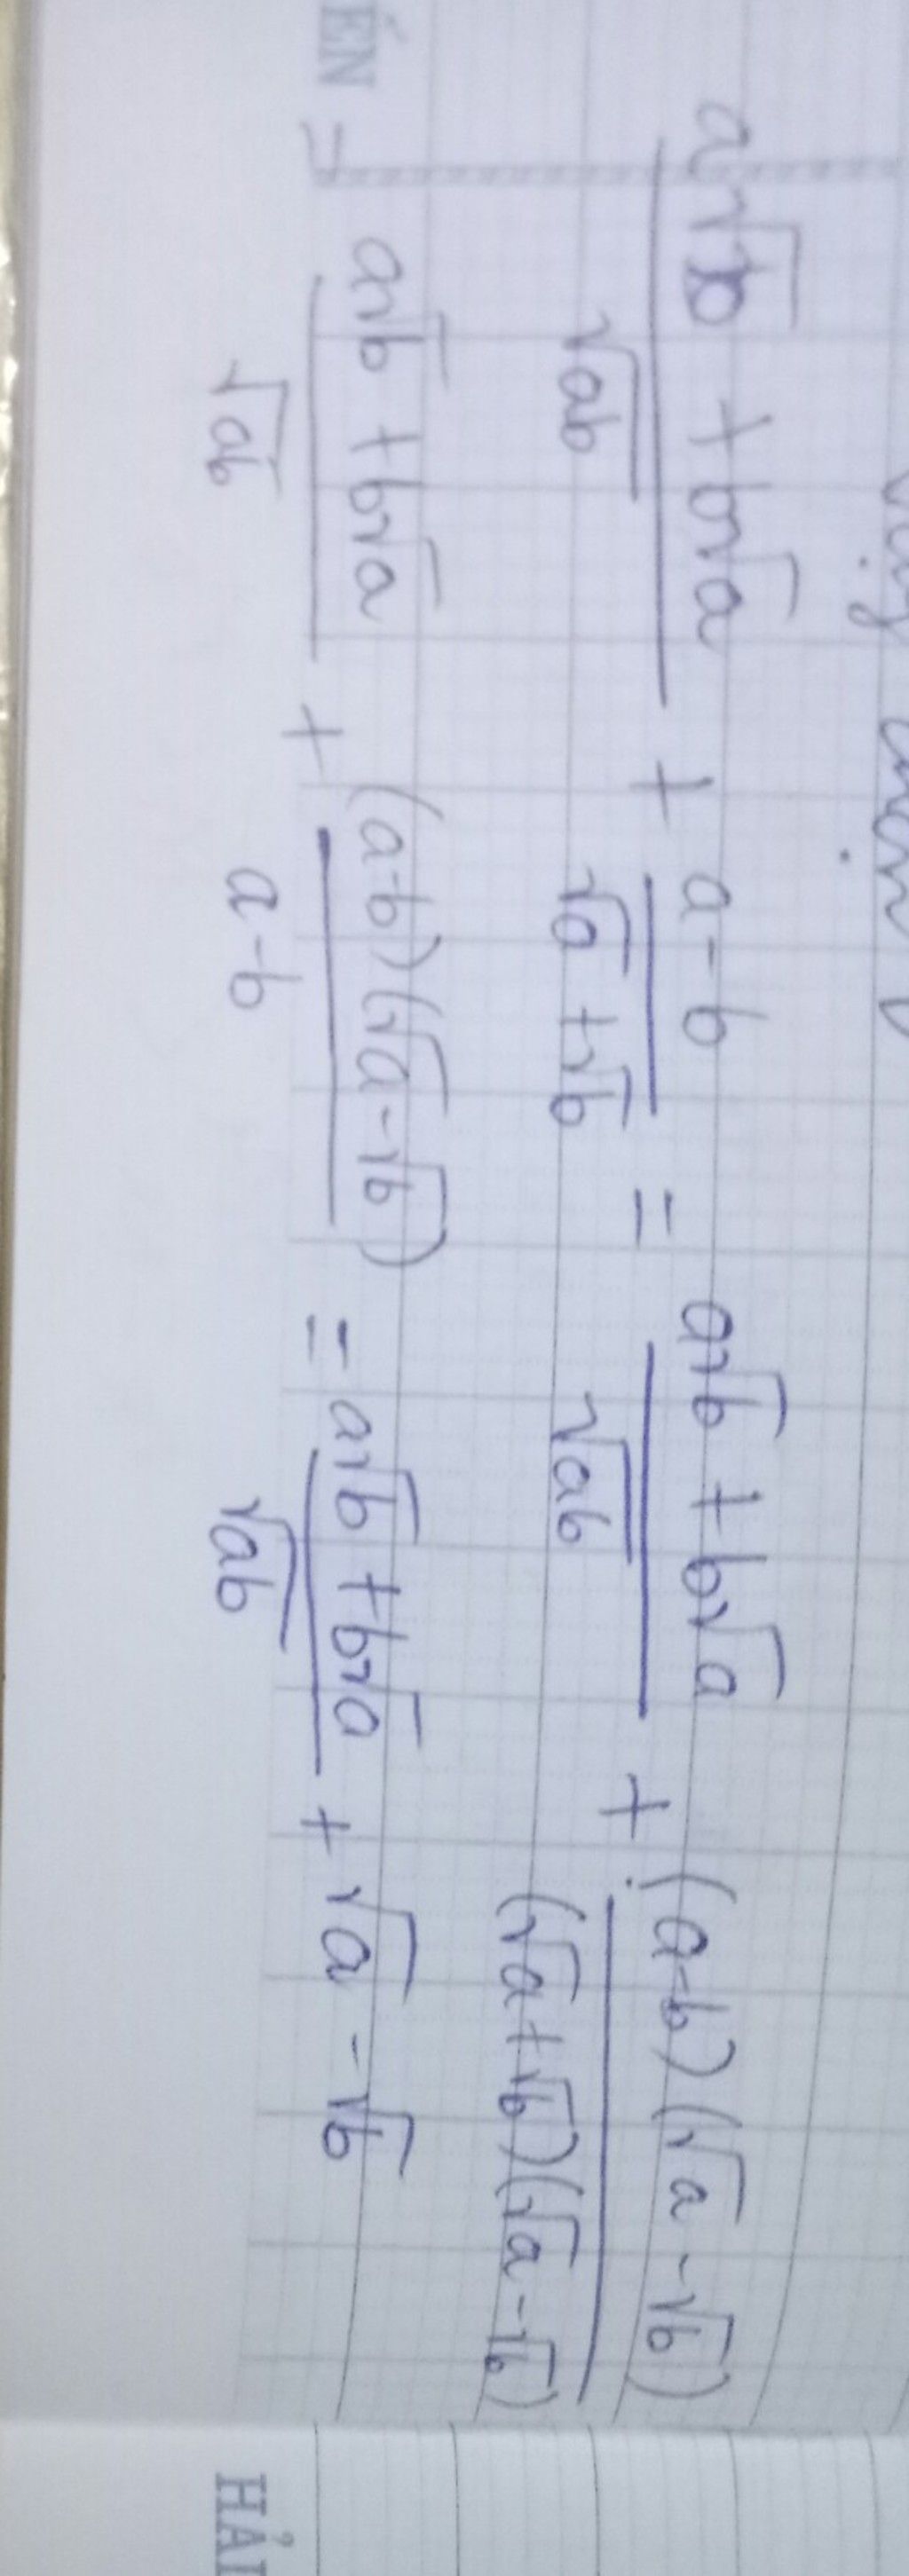 a√b + b√a / √ab + a-b / √a + √b = a√b + b√a / √ab + (a-b)(√a - √b) / (√a + √b)(√a - √b)
= a√b + b√a / √ab + (a-b)(√a - √b) / a-b = a√b + b√a / √ab + √a - √b